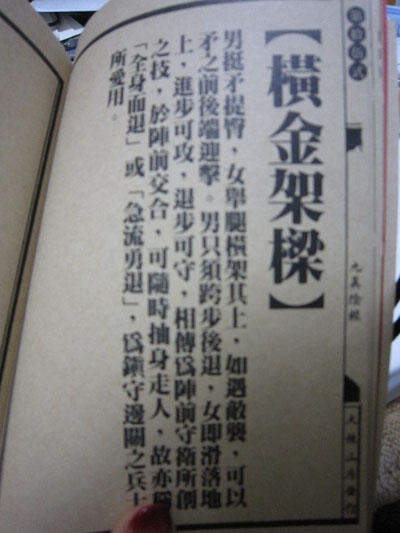 【橫金架樑】
男挺矛提臀，女舉腿橫架其上，如遇敵襲，可以
矛之前後端迎擊。男只須跨步後退，女即滑落地
上，進步可攻，退步可守，相傳為陣前守衛所創
之技，於陣前交合，可隨時抽身走人，故亦稱
「全身而退」或「急流勇退」，為鎮守邊關之兵士
所愛用。
九真陰經